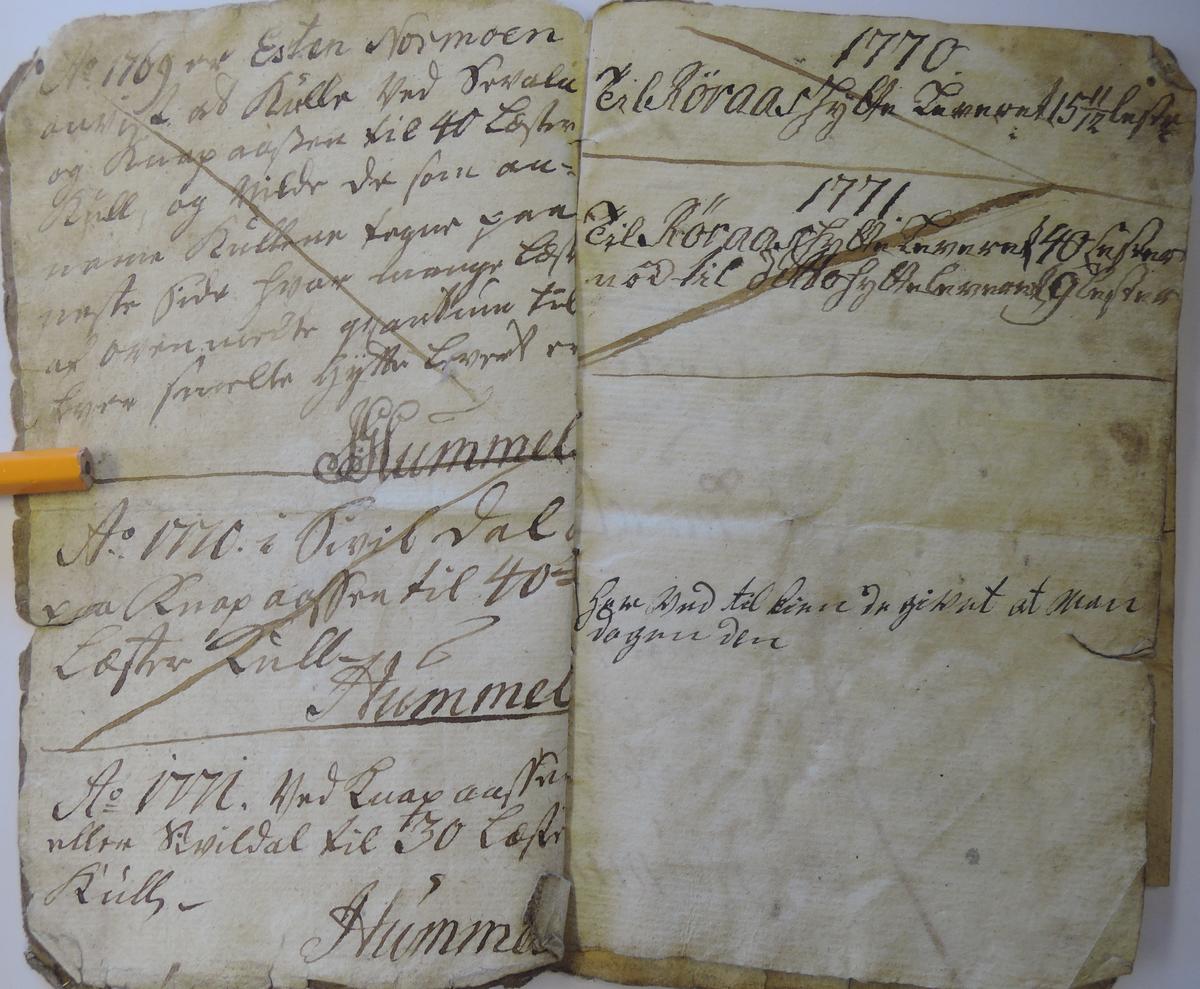 Ao 1769 er Esten Normoen
anvist at Külle Ved Sevala
og Knapaassen til 40 Læster
Küll, og Vilde de som an=
neme Küllene tegne paa
neste Side hvor mange Læst
af ovenmelte qvantum til
hver smelte Hytte Levert er
Hummel
Ao 1770. i Sivil dal
paa Knapaassen til 40
Læster Küll
Hummel
Ao 1771. Ved Knapaassen
eller Sivildal til 30 Læste
Küll
Hümmel
1770
Til Røraas hytte Leveret 15 11/12 lester
1771
Til Røraas hytte Leveret 40 Lester
nod til ditto hytte leveret 9 lester
her Ved til kiende givet at Man
dagen den